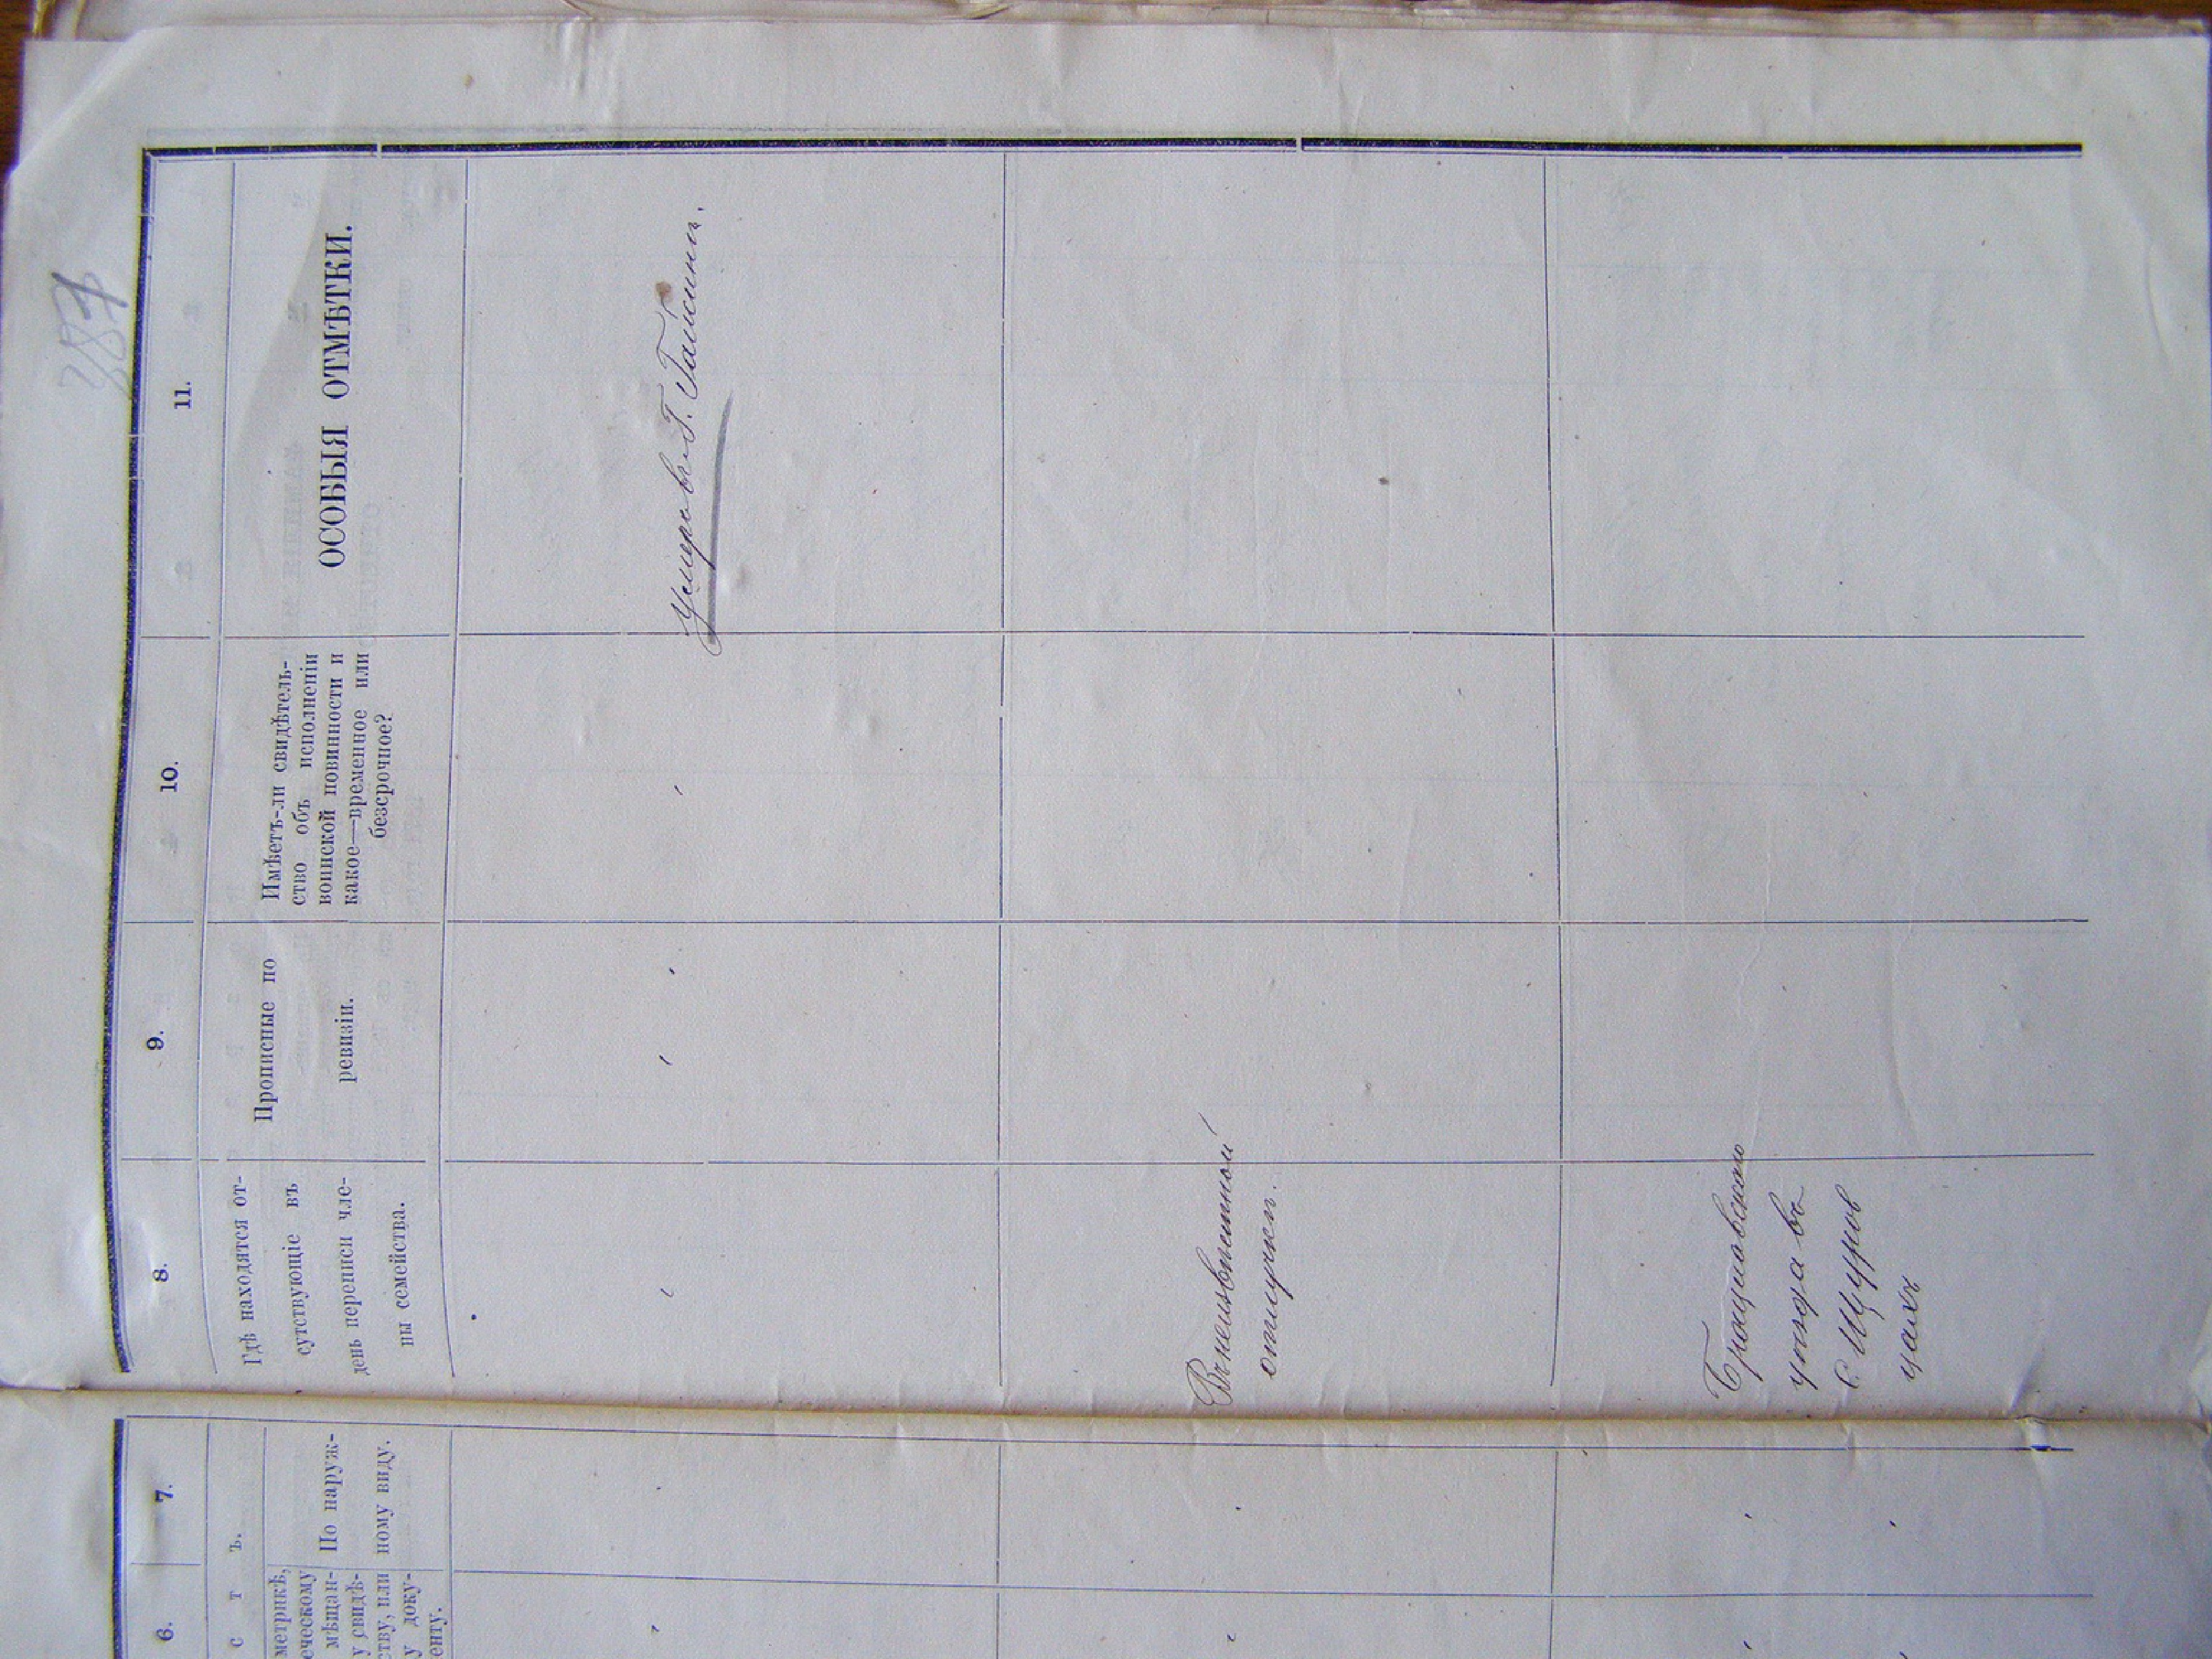 287
6.
7.
8.
9.
10.
11.
с т ъ.
метрикѣ,
еческому
мѣщан-
у свидѣ-
ству, или
у доку-
енту.
По наруж-
ному виду.
Гдѣ находятся от-
сутствующіе въ
день переписи чле-
ны семейства.
Прописные по
ревизіи.
Имѣетъ-ли свидѣтель-
ство объ исполненіи
воинской повинности и
какое—временное или
безсрочное?
ОСОБЫЯ ОТМѢТКИ.
умеръ въ г. Гайсинѣ.
Въ неизвѣстной
отлучкѣ.
Брацлавского
уѣзда въ
с. Щуров
цахъ